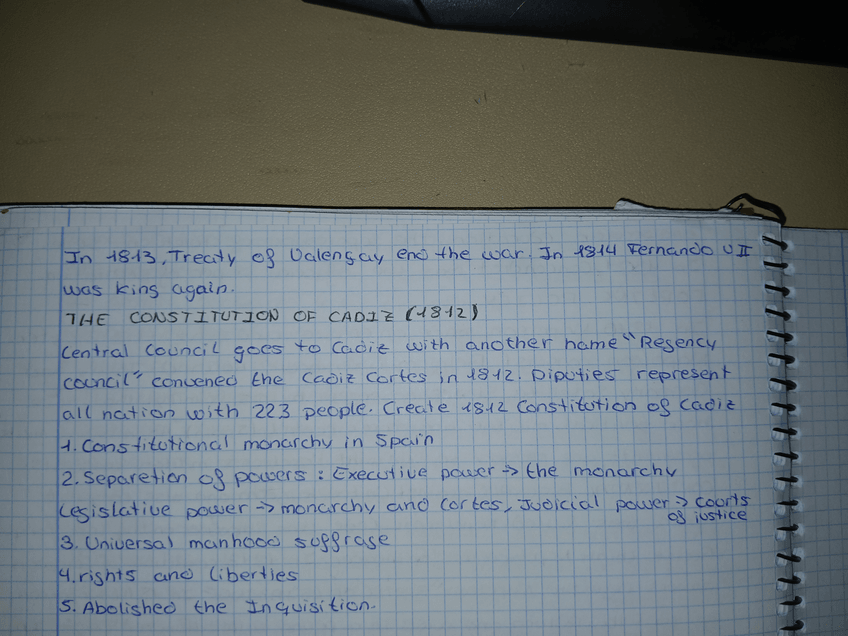 In 1813, Treaty of Valençay end the war. In 1814 Fernando VII
was king again.
THE CONSTITUTION OF CADIZ (1812)
Central Council goes to Cadiz with another name "Regency
council" convened the Cadiz Cortes in 1812. Diputies represent
all nation with 223 people. Create 1812 Constitution of Cadiz
1. Constitutional monarchy in Spain
2. Separetion of powers : Executive power → the monarchy
Legislative power → monarchy and cortes, Judicial power → coorts
of justice
3. Universal manhood suffrase
4. rights and liberties
5. Abolished the Inquisition.